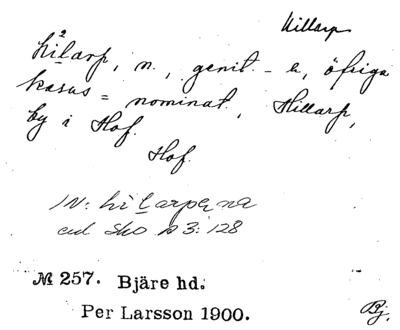 Hillarp
hi²larp, n., genit. -a, öfriga
kasus = nominat., Hillarp,
by i Hof.
Hof.
IN: hilarpena
enl Sko A3:128
№ 257. Bjäre hd.
Per Larsson 1900.
Bj.